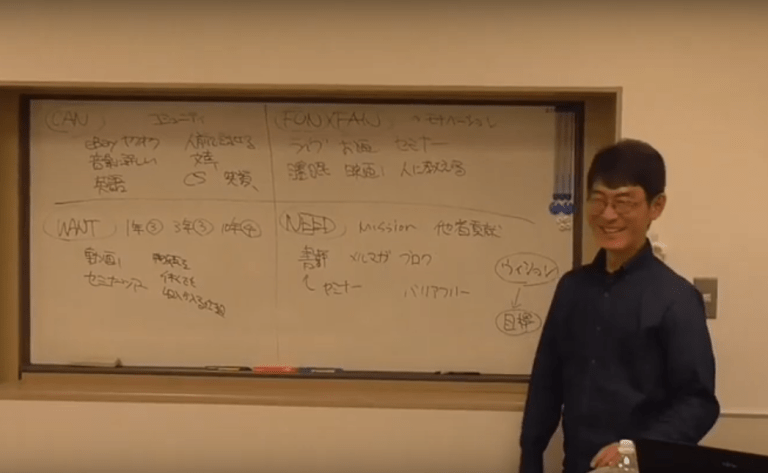 CAN
eBay ヤフオク 人前で話せる
音楽に詳しい 文章
英語 CS
FUN×FAN モチベーション
ライブ お酒 セミナー
睡眠 映画 人に教える
WANT 1年③ 3年③ 10年④
動画
セミナーツアー
NEED Mission 他者貢献
書籍 メルマガ ブログ
セミナー バリアフリー
ヴィジョン
目標